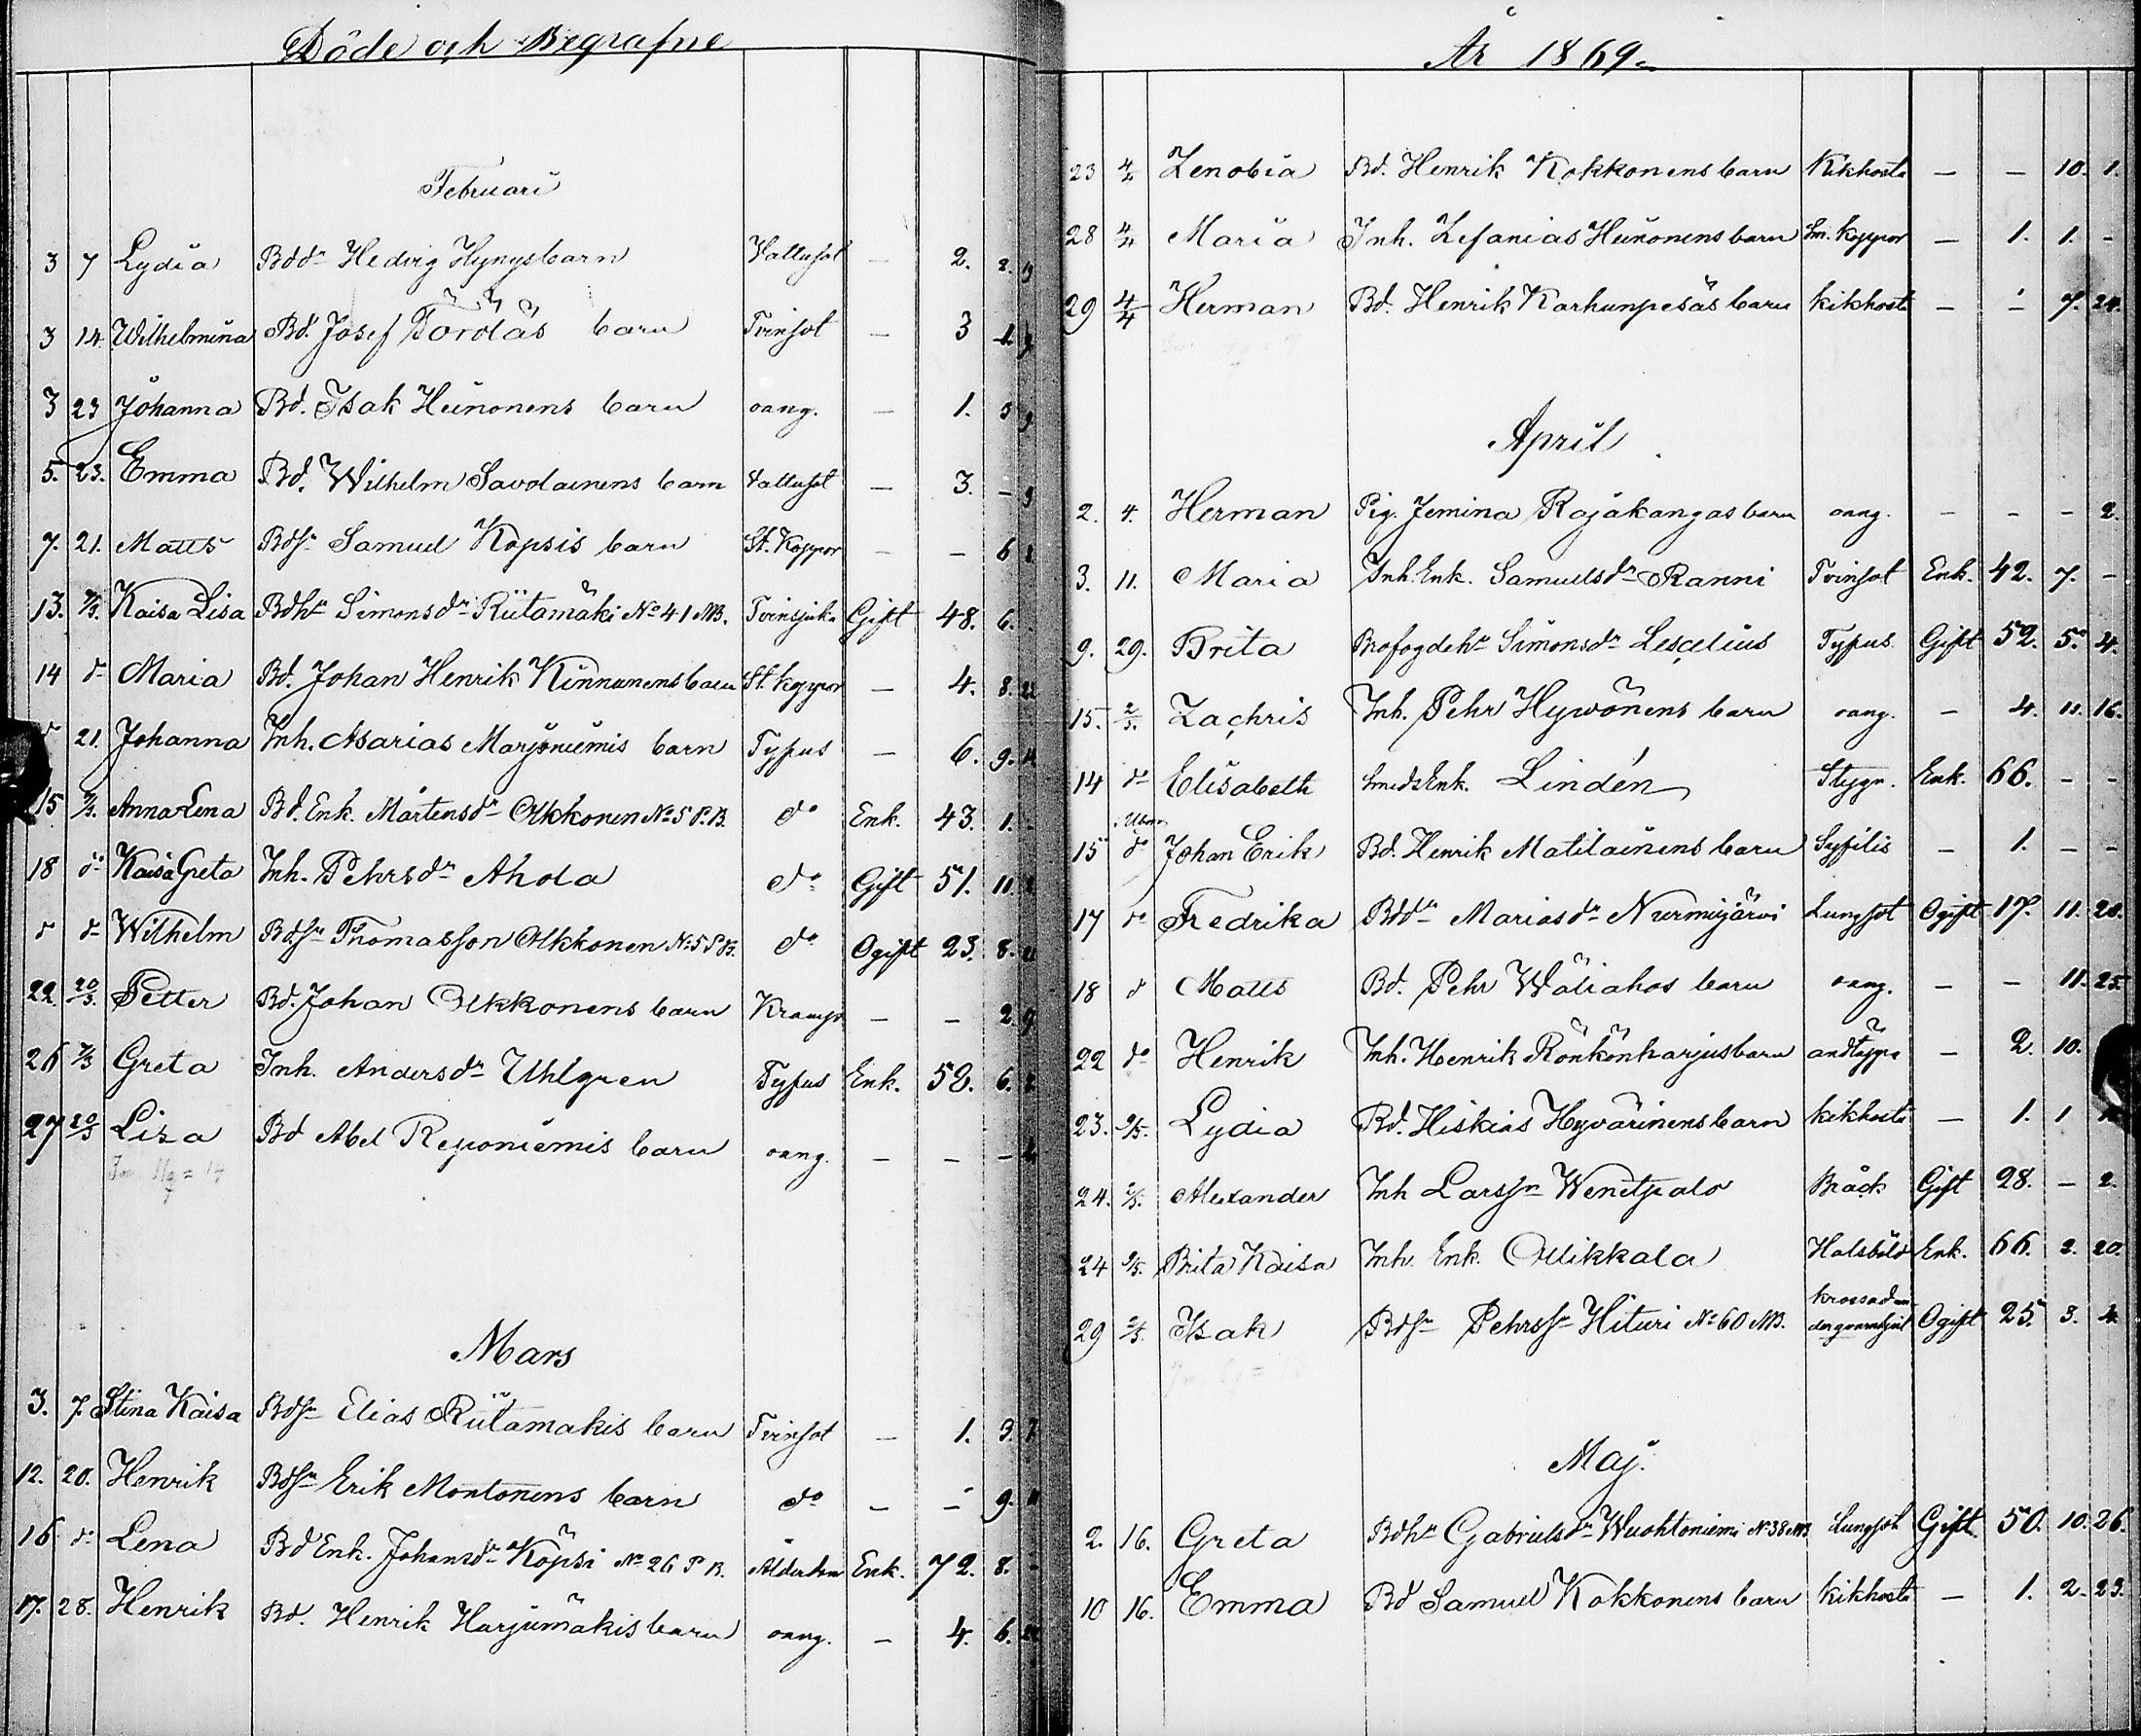 Döde och Begrafne
Februari
3 7 Lydia Bddr Hedvig Hynys barn Vattusot — 2. 2.
3 14. Wilhelmina Bd. Josef Töröläs barn Tvinsot — 3
3 23 Johanna Bd. Isak Heinonens barn oang. — 1. 3
5. 23. Emma Bd. Wilhelm Savolainens barn Vattusot — 3. —
7. 21. Matts Bdsn Samuel Köpsis barn St. Koppor — — 6
13. 7/3. Kaisa Lisa Bdhu Simonsdr Riitamäki No 41 MB. Tvinsjuka Gift 48. 6.
14 do Maria Bd. Johan Henrik Kinnunens barn St. koppor — 4. 8. 22
do 21. Johanna Inh. Asarias Marjoniemis barn Typus — 6. 9.
15 7/3. Anna Lena Bd. Enk. Mårtensdr Olkkonen No 5 P.B. do Enk. 43. 1.
18 do Kaisa Greta Inh. Pehrsdr Ahola do Gift 51. 11.
do do Wilhelm Bdsn Thomasson Olkkonen No 5 PB. do Ogift 23. 8.
22 20/3. Petter Bd. Johan Olkkonens barn Kramp — — 2. 9
26 7/3 Greta Inh. Andersdr Uhlgren Typus Enk. 52. 6.
27 20/3 Lisa Bd Abel Reponiemis barn oang. — — —
Mars
3. 7. Stina Kaisa Bdsn Elias Riitamäkis barn Tvinsot — 1. 3. 7
12. 20. Henrik Bdsn Erik Montonens barn do — — 9. 11
16 do Lena Bd Enk. Johansdr Köpsi No 26 P B. Ålderdom Enk. 72. 8. —
17. 28. Henrik Bd. Henrik Harjumäkis barn oang. — 4. 6.
År 1869.
23 4/4 Zenobia Bd. Henrik Kokkonens barn Kikhosta — — 10. 1.
28 4/4 Maria Inh. Zefanias Heinonens barn Sm. Koppor — 1. 1. —
29 4/4 Herman Bd. Henrik Karhunpesäs barn kikhosta — — 7. 24.
April
2. 4. Herman Pig. Jemina Rajakangas barn oang. — — — 2.
3. 11. Maria Inh. Enk. Samuelsdr Ranni Tvinsot Enk. 42. 7. —
9. 29. Brita Brofogdehu Simonsdr Lescelius Typus Gift 52. 5. 4.
15. 2/5. Zachris Inh. Pehr Hywönens barn oang. — 4. 11. 16.
14 do Elisabeth Smeds Enk. Lindén Stygn. Enk. 66. — —
15 do Johan Erik Bd. Henrik Matilainens barn Syfilis — 1. — —
17 do Fredrika Bddr Mariasdr Nurmijärvi Lungsot Ogift 17. 11. 20.
18 do Matts Bd. Pehr Wäliahos barn oang. — — 11. 25.
22 do Henrik Inh. Henrik Rönkönharjus barn andtäppa — 2. 10.
23. 2/5. Lydia Bd. Hiskias Hyvärinens barn kikhosta — 1. 1
24. 2/5. Alexander Inh Larssn Wenetpalo Bråck Gift 28. — 2.
24 2/5. Brita Kaisa Inh. Enk. Ollikkala Halsböld Enk. 66. 2. 20.
29 2/5. Isak Bdsn Pehrssn Hituri No 60 MB. krossad under qvarnhjul Ogift 25. 3. 4
Maj.
2. 16. Greta Bdhu Gabrielsdr Wuohtoniemi No 38 MB Lungsot Gift 50. 10. 26.
10 16. Emma Bd Samuel Kokkonens barn kikhosta — 1. 2. 23.